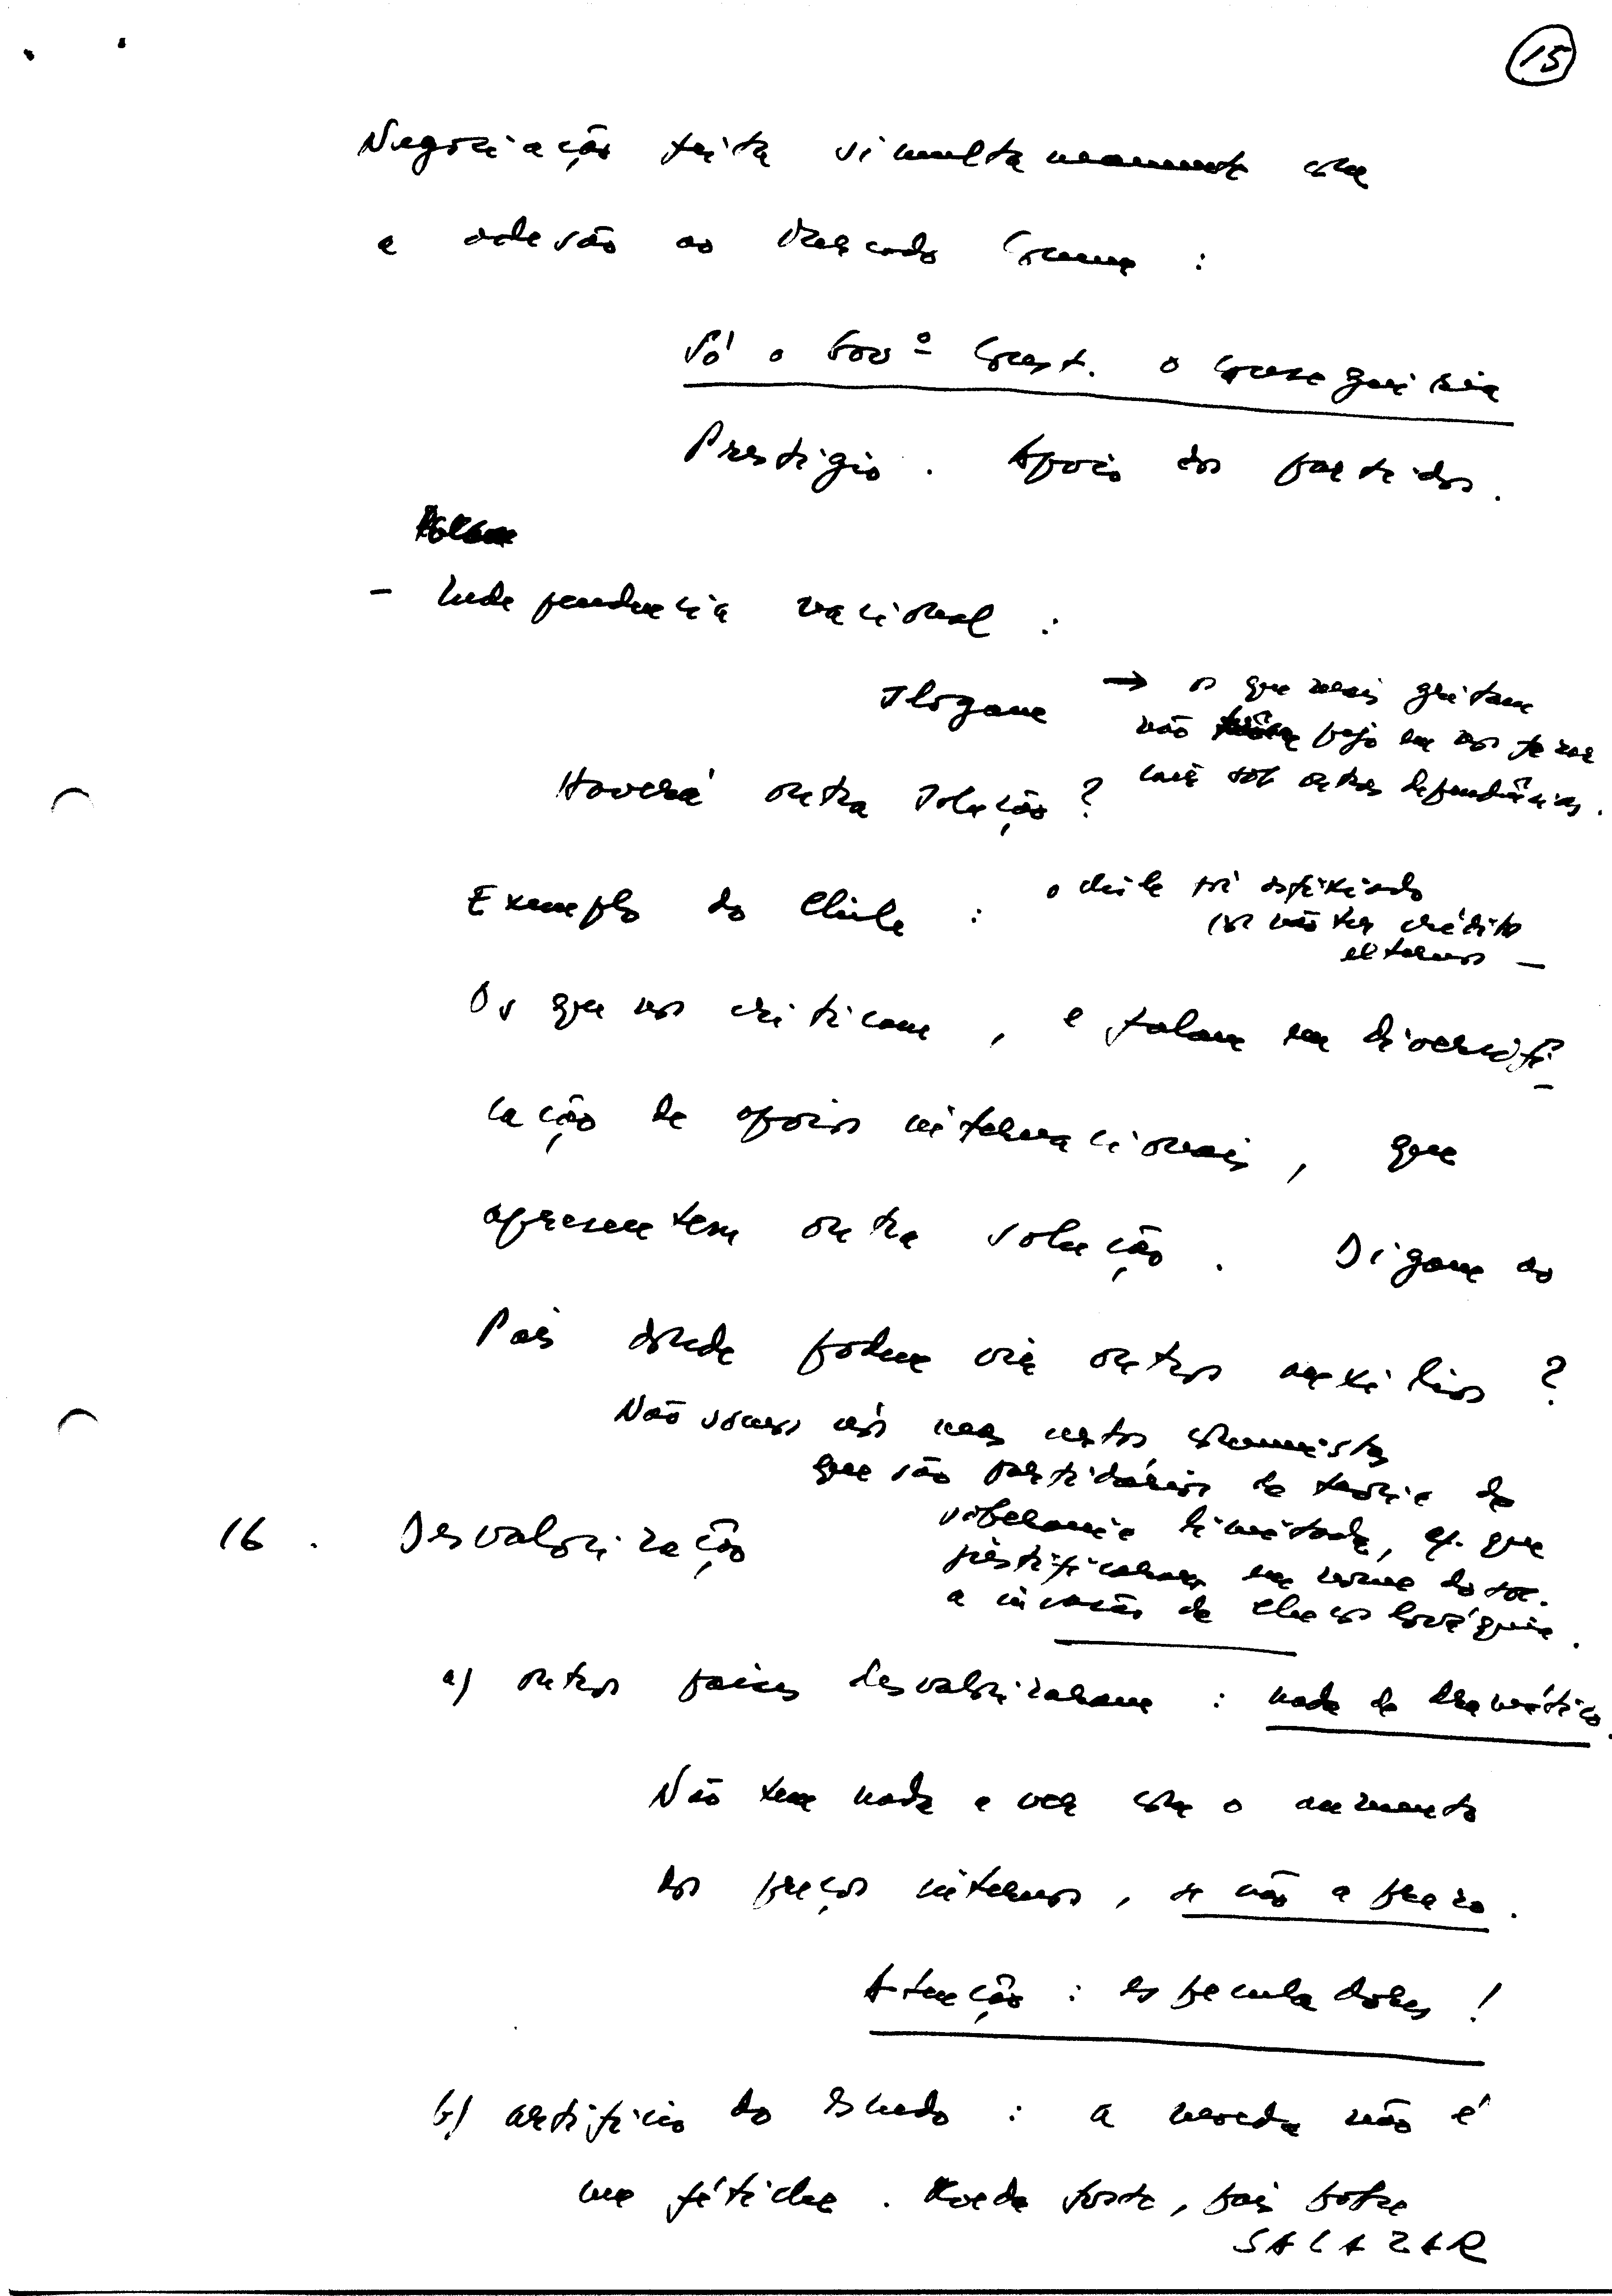 15
Negociação feita simultaneamente com
a adesão ao Mercado Comum :
Só o Govº Const. o conseguiria
Prestígio . Apoio dos partidos .
- Independência nacional :
Slogan → os que mais gritam
não pejo em nos
sob outras dependências .
Haverá outra solução ?
Exemplo do Chile : o Chile foi asfixiado
por não ter crédito
externo -
Os que nos criticam , e falam em diversifi-
cação de apoios internacionais , que
apresentem outra solução . Digam ao
País donde podem vir outros auxílios ?
Não somos nós mas certos comunistas
que são partidários da teoria da
soberania limitada, que
justificaram em nome do soc.
a invasão da Checoslováquia .
16 . Desvalorização
a) outros países desvalorizaram : nada de dramático .
Não tem nada a ver com o aumento
dos preços internos , se não a prazo .
Atenção : especuladores !
b) artifício do Escudo : a moeda não é
um fétiche . Moeda forte , país pobre
SALAZAR